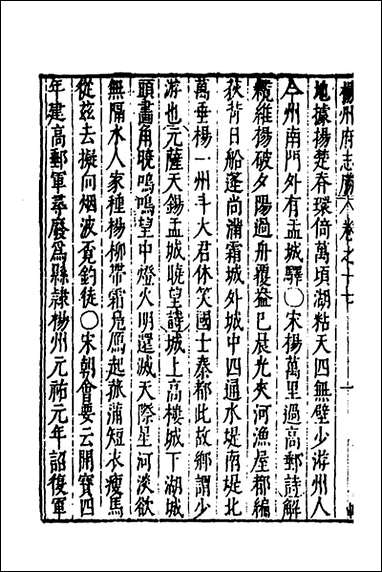 楊州府志勝 卷之十七 一
地據揚楚脊環倚萬頃湖粘天四無壁少游州人
今州南門外有盂城驛〇宋楊萬里過高郵詩解
纜維揚破夕陽過舟覆盎已晨光夾河漁屋都編
荻背日船蓬尚滿霜城外城中四通水堤南堤北
萬垂楊一州斗大君休笑國士秦郎此故鄉謂少
游也元薩天錫盂城曉望詩城上高樓城下湖城
頭畫角曉嗚嗚望中燈火明還滅天際星河淡欲
無隔水人家種楊柳帶霜鳧鴈起菰蒲短衣瘦馬
從茲去擬向烟波覓釣徒〇宋朝會要云開寶四
年建高郵軍尋廢爲縣隷楊州元祐元年詔復軍